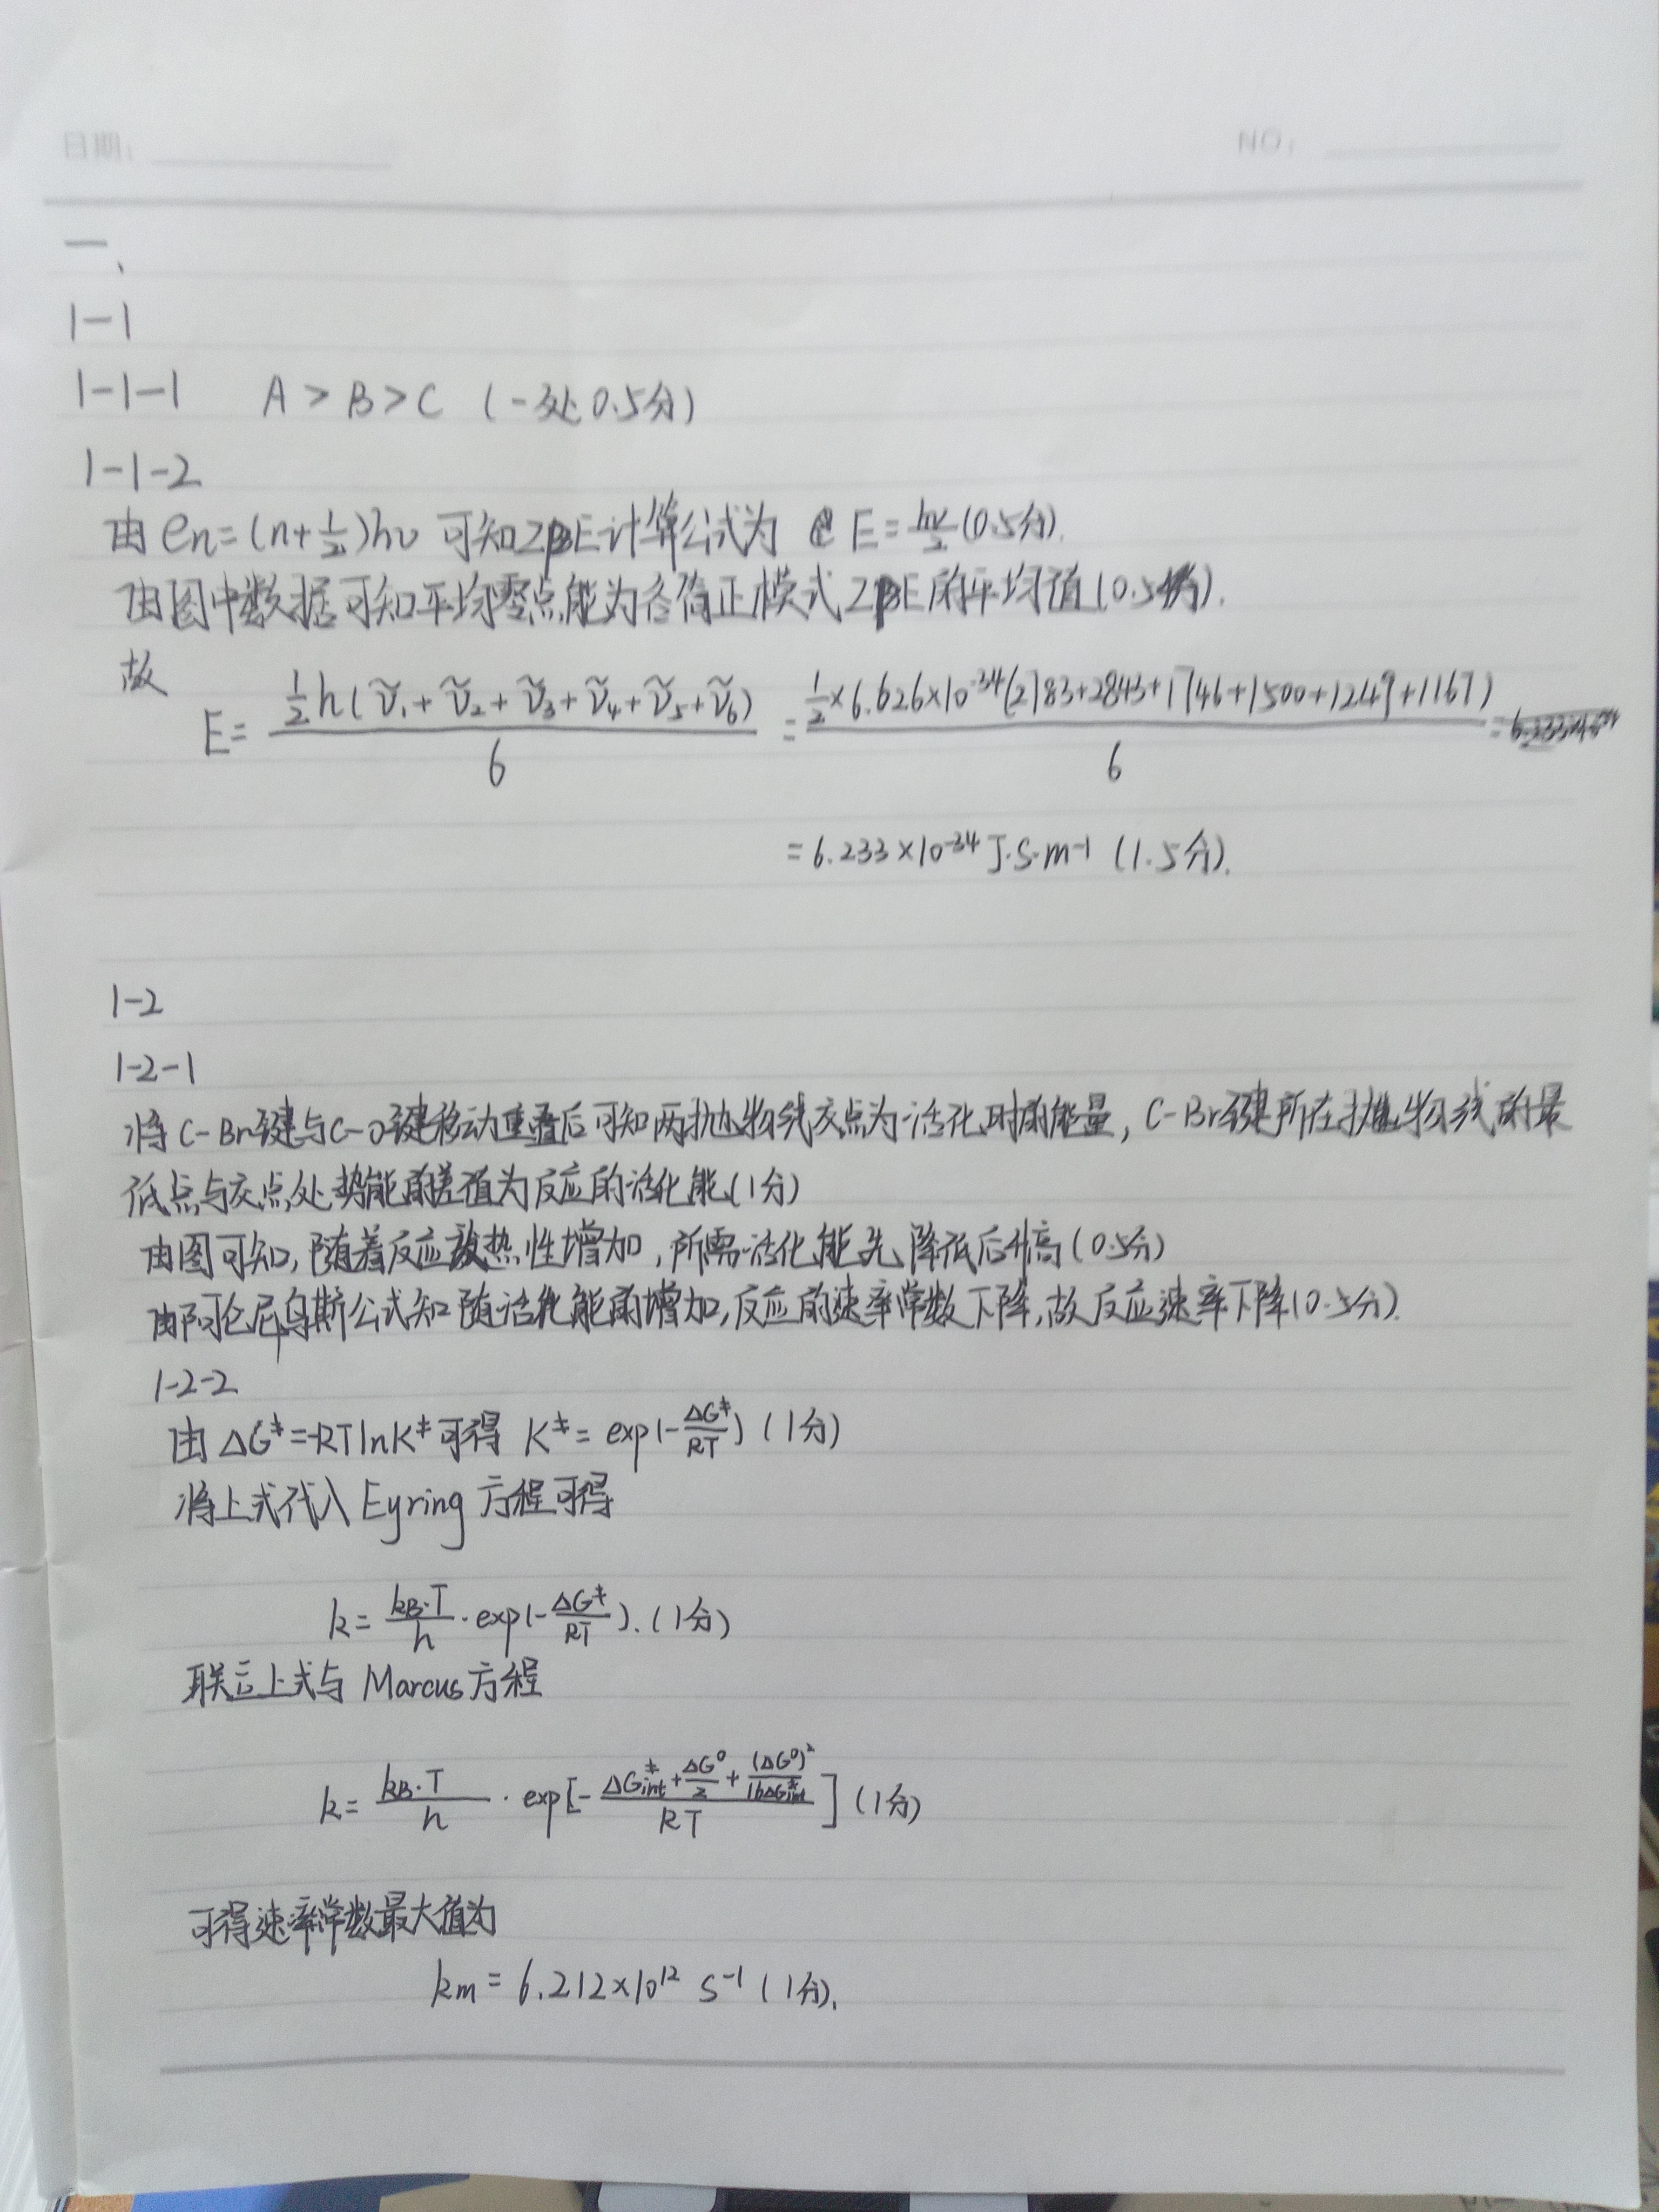 日期:
NO:
一、
1-1
1-1-1 A > B > C (一处0.5分)
1-1-2
由 en=(n+1/2)hν 可知ZPE计算公式为 E=hν/2 (0.5分).
由图中数据可知平均零点能为各简正模式ZPE的平均值(0.5分).
故
E= ½h(ν̃₁+ν̃₂+ν̃₃+ν̃₄+ν̃₅+ν̃₆)/6 = ½×6.626×10⁻³⁴(2783+2843+1746+1500+1249+1167)/6
=6.233×10⁻³⁴ J·S·m⁻¹ (1.5分).
1-2
1-2-1
将C-Br键与C-O键移动重叠后可知两抛物线交点为活化时的能量, C-Br键所在抛物线的最
低点与交点处势能的差值为反应的活化能(1分)
由图可知,随着反应放热性增加,所需活化能先降低后升高(0.5分)
由阿伦尼乌斯公式知随活化能的增加,反应的速率常数下降,故反应速率下降(0.5分).
1-2-2
由 ΔG‡=-RTlnK‡ 可得 K‡= exp(-ΔG‡/RT) (1分)
将上式代入Eyring方程可得
k= kB·T/h · exp(-ΔG‡/RT). (1分)
联立上式与Marcus方程
k= kB·T/h · exp[-(ΔG‡int+ΔG°/2+(ΔG°)²/16ΔG‡int)/RT] (1分)
可得速率常数最大值为
km = 6.212×10¹² S⁻¹ (1分).